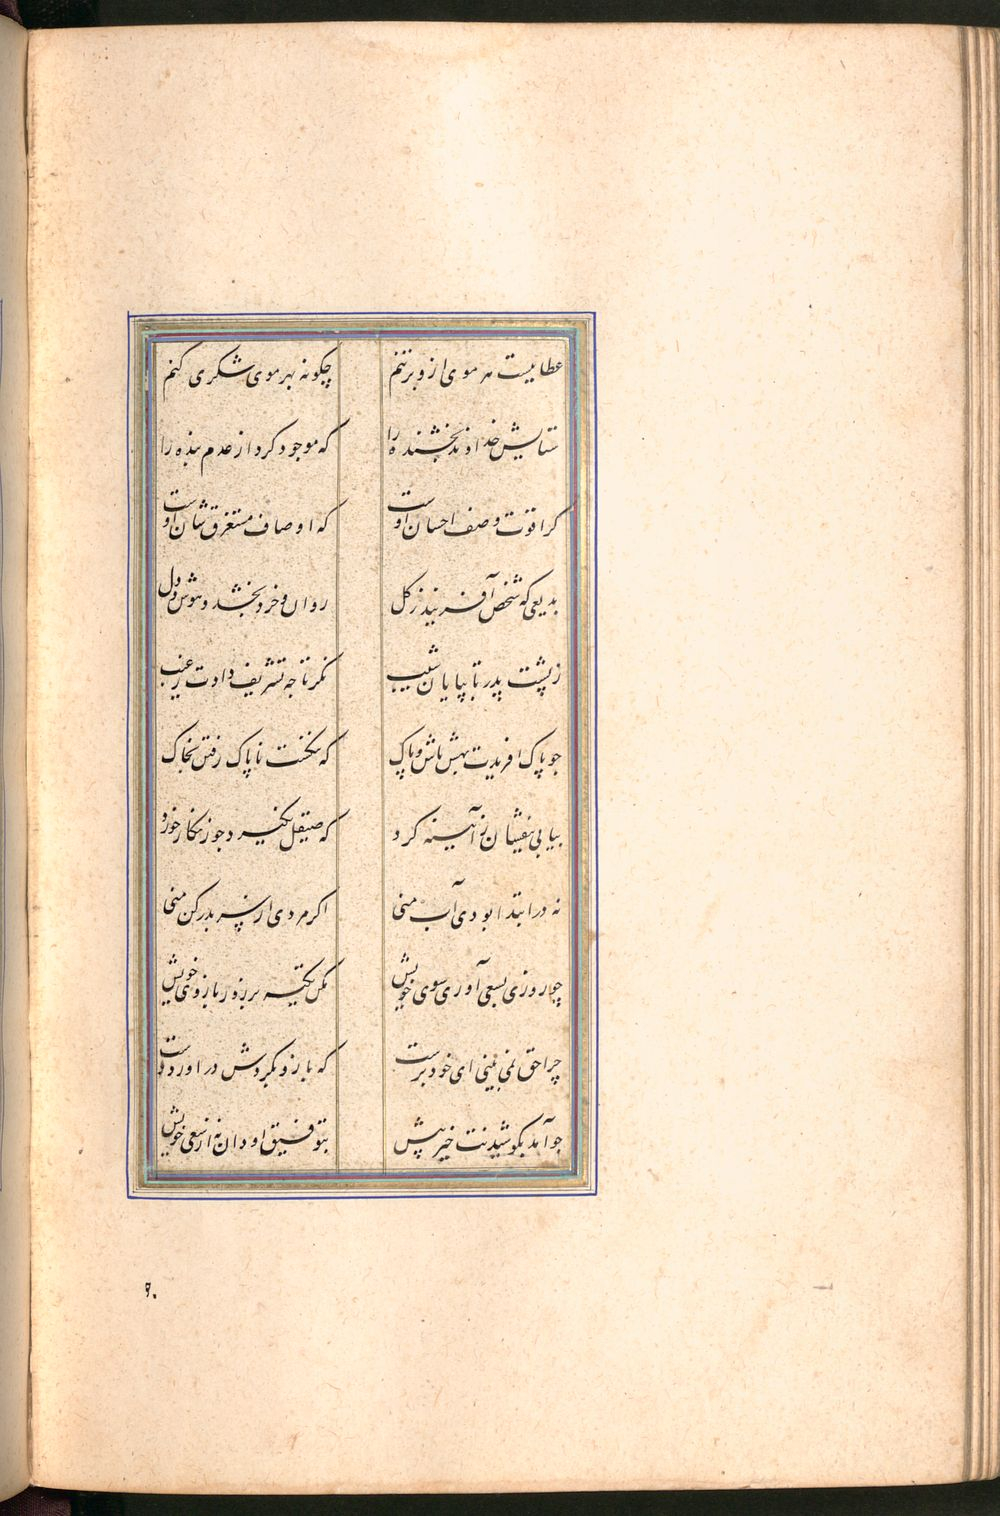 عطاییست هر موی ازو بر تنم چکونه بهر موی شکری کنم
ستایش خداوند بخشنده را که موجود کرد از عدم بنده را
کرا قوت وصف احسان اوست که اوصاف مستغرق شان اوست
بدیعی که شخص آفریند ز کل روان و خرد بخشد و هوش و دل
ز پشت پدر تا بپایان شیب نکر تا چه تشریف دادت ز غیب
جو پاک افریدت بهش باش و پاک که ننکست ناپاک رفتن بخاک
بیابی بیفشان ز آیینه کرد که صیقل نکیرد جو زنکار خورد
نه در ابتدا بودی آب منی اکر مردی از سر بدر کن منی
چو روزی بسعی آوری سوی خویش مکن تکیه بر زور بازوی خویش
چرا حق نمی بینی ای خودپرست که بازو بکردش دراورد و دست
جو آمد بکوشیدنت خیر پیش بتوفیق او دان نه از سعی خویش
۶۰